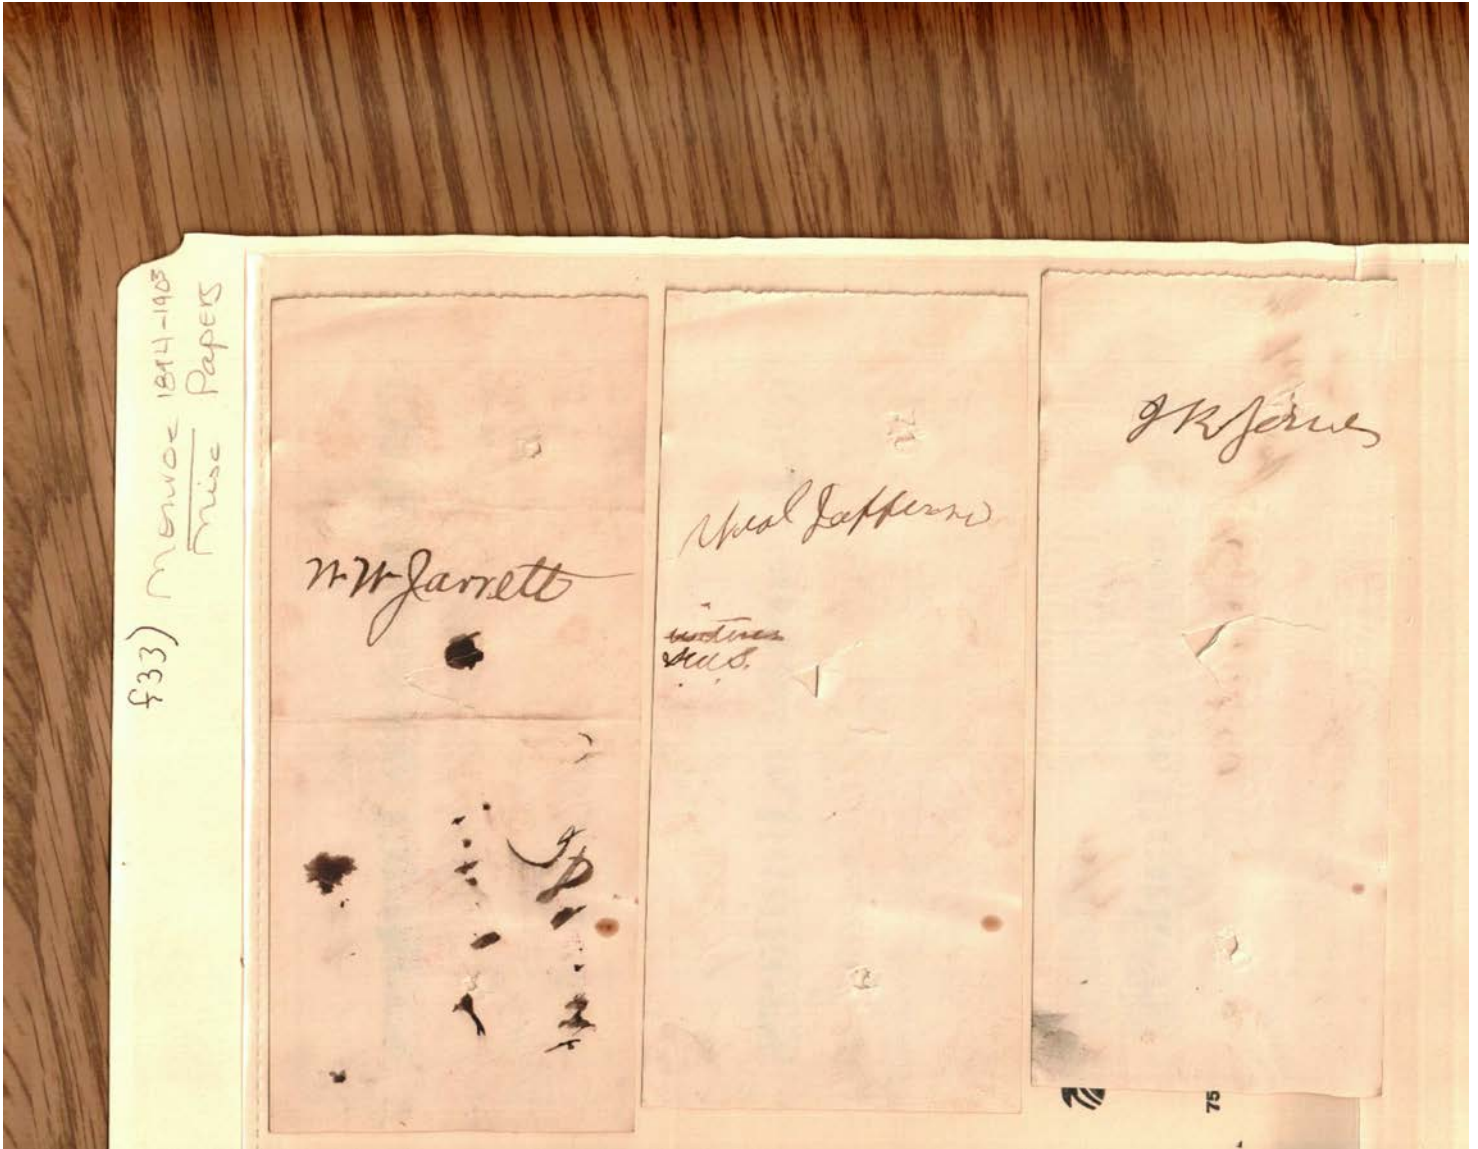 f33) Monroe 1894-1903
Misc Papers
W W Jarrett
Neal Jafferson
S.W.S.
J R Jones
75